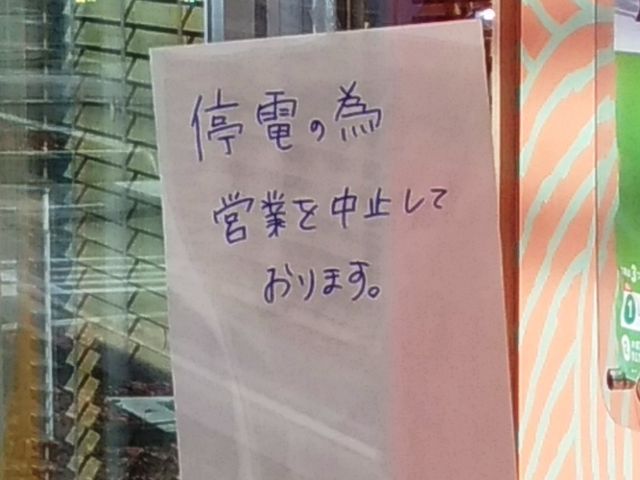 停電の為
営業を中止して
おります。